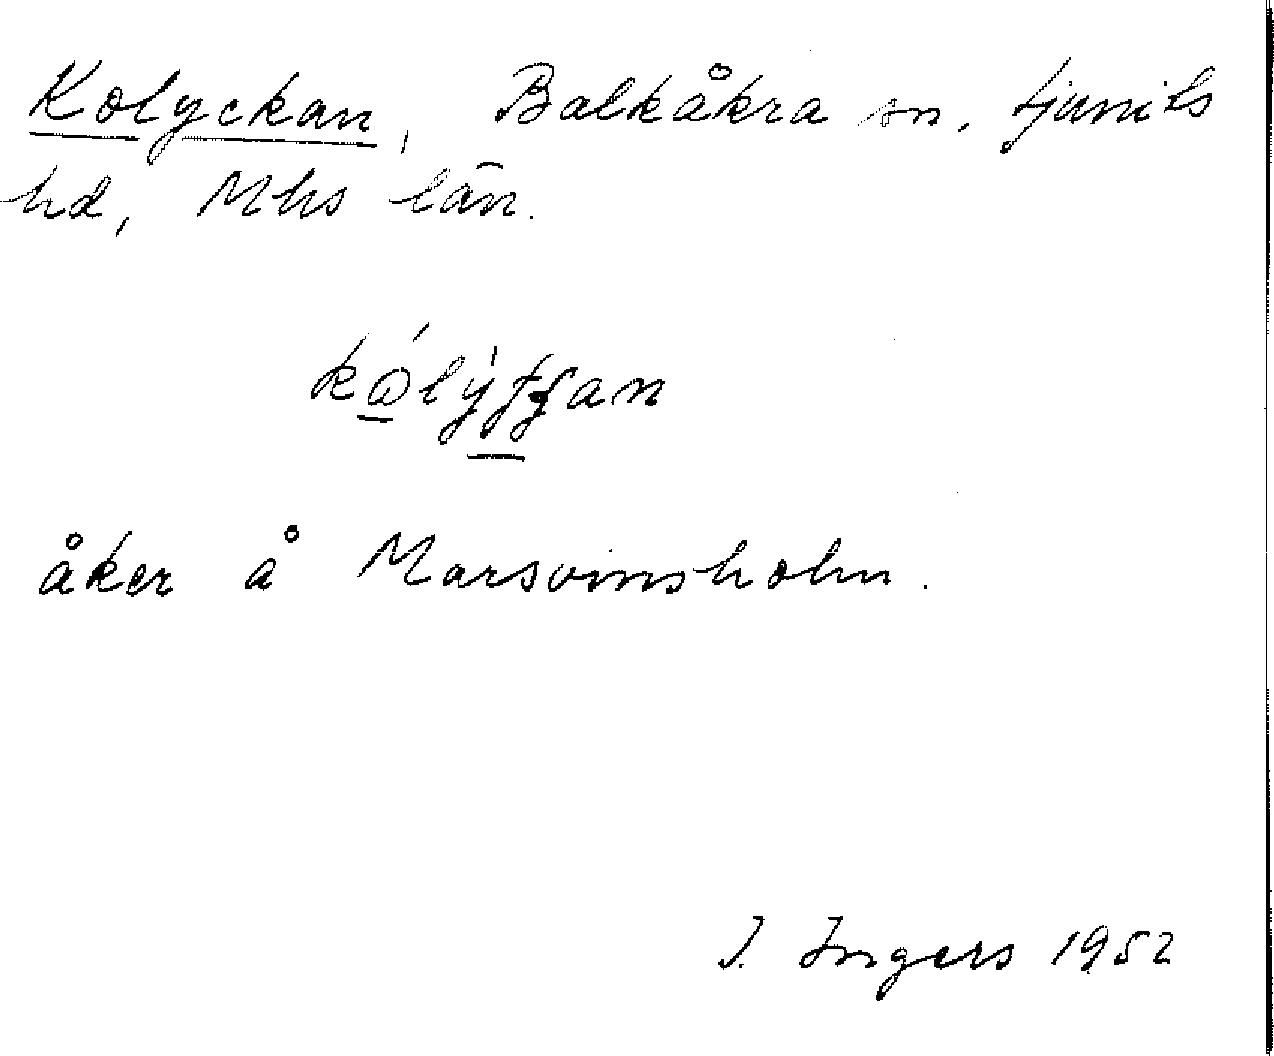 Kolyckan, Balkåkra sn. Ljunits
hd, Mhs län.
åker å Marsvinsholm.
I. Ingers 1952